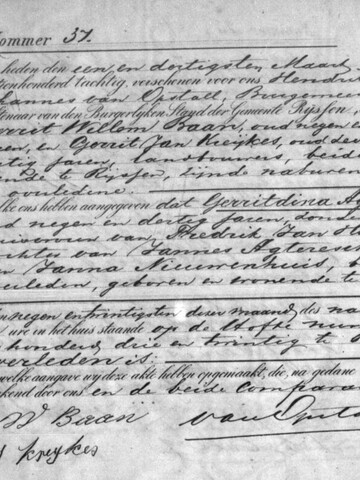 Nommer 37.
heden den een en dertigsten Maart
tienhonderd tachtig, verschenen voor ons Hendrik
hannes van Opstall, Burgemees
tenaar van den Burgerlijken Stand der Gemeente Rijssen,
Gerrit Willem Baan, oud negen e
ren, en Gerrit Jan Kreijkes, oud de
tig jaren, landbouwers, beid
nde te Rijssen, zijnde naburen
overledene.
lke ons hebben aangegeven dat Gerritdina Ag
d negen en dertig jaren, zonder
huisvrouw van Fredrik Jan H
ochter van Jannes Agteres
en Janna Nieuwenhuis, b
verleden, geboren en wonende te
den negen en twintigsten dezer maand des na
ure in het huis staande op de Hofte num
honderd drie en twintig te
overleden is.
welke aangave wij deze akte hebben opgemaakt, die, na gedane
kend door ons en de beide Compara
W Baan van Opsta
J kreykes